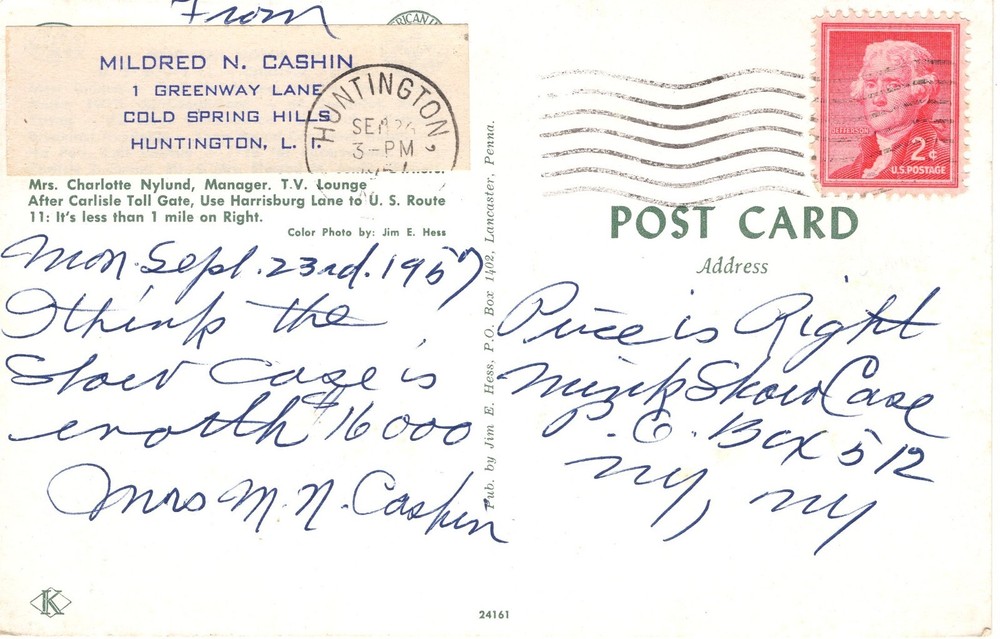 From
MILDRED N. CASHIN
1 GREENWAY LANE
COLD SPRING HILLS
HUNTINGTON, L. I.
HUNTINGTON,
SEP
3-PM
Mrs. Charlotte Nylund, Manager. T.V. Lounge
After Carlisle Toll Gate, Use Harrisburg Lane to U. S. Route
11: It's less than 1 mile on Right.
Color Photo by: Jim E. Hess
Mon. Sept. 23rd. 1957
I think the
Show Case is
worth $16000
Mrs M. N. Cashin
Pub. by Jim E. Hess, P.O. Box 1402, Lancaster, Penna.
JEFFERSON
2¢
U.S. POSTAGE
POST CARD
Address
Price is Right
Mink Show Case
P.O. Box 512
NY, NY
K
24161